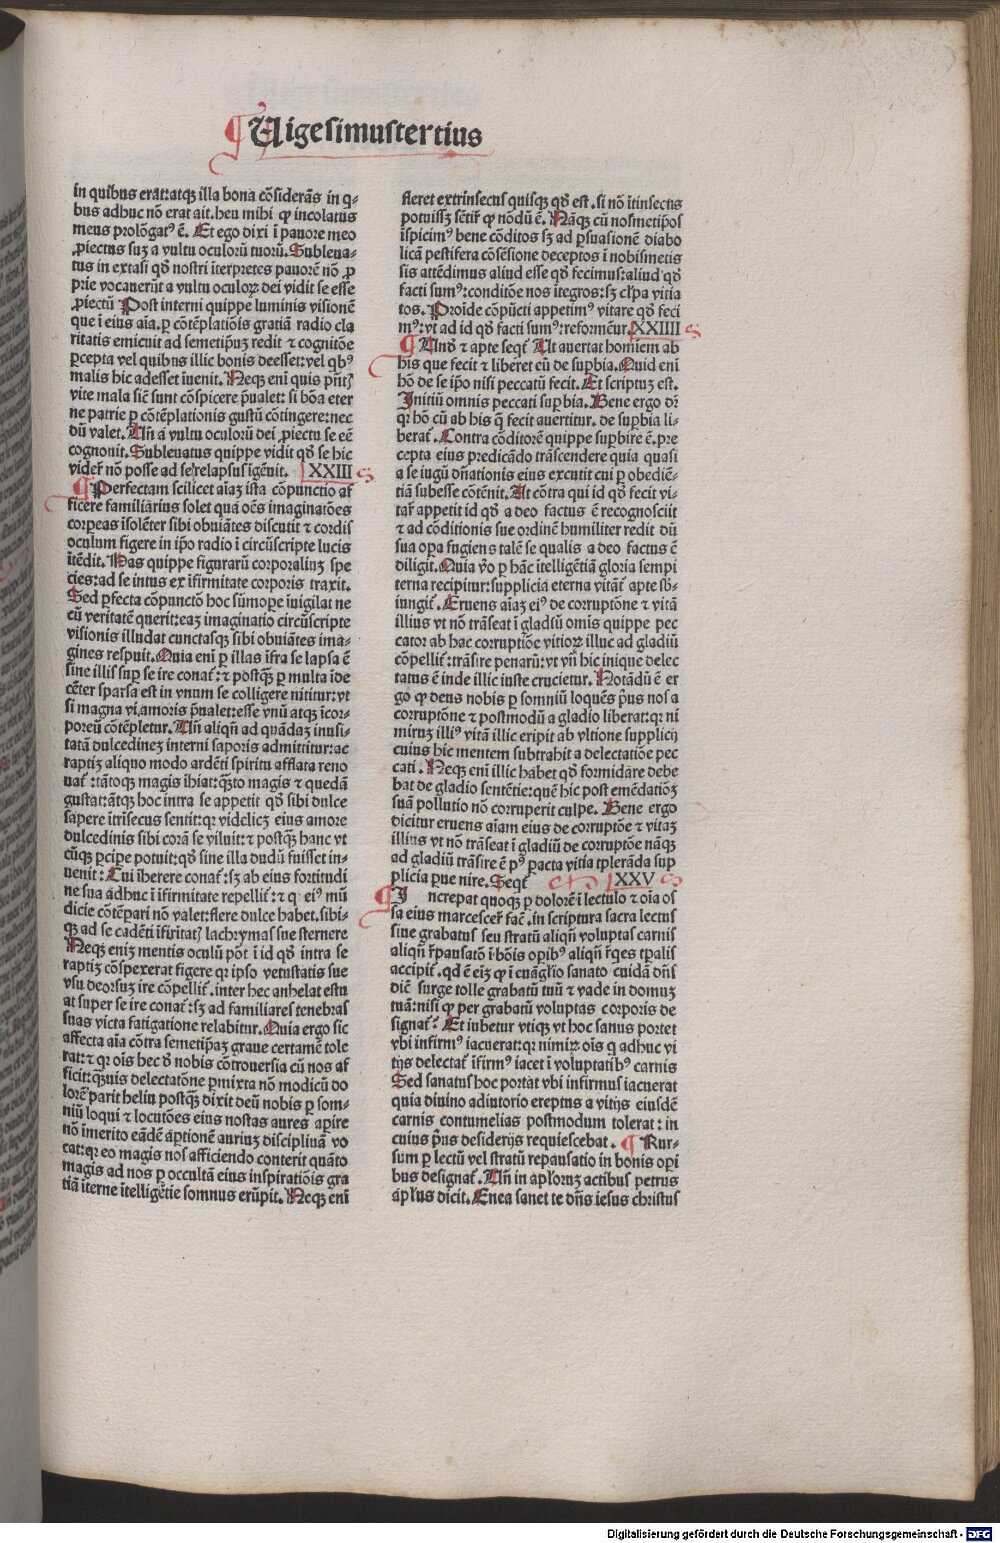 Uigesimustertius
in quibus erāt:atqȝ illa bona cōsiderās in q-
bus adhuc nō erat ait.heu mihi qꝛ incolatus
meus prolōgatꝰ ē. Et ego dixi ī pauore meo
ꝓiectus suȝ a vultu oculorū tuorū. Subleua-
tus in extasi qđ nostri īterpretes pauorē nō ꝓ
prie vocauerūt a vultu oculoꝝ dei vidit se esse
ꝓiectū Post interni quippe luminis visionē
que ī eius aīa.ꝑ cōtēplatiōis gratiā radio cla
ritatis emicuit ad semetipsuȝ redit ⁊ cognitōe
ꝑcepta vel quibus illic bonis deesset:vel qbꝰ
malis hic adesset īuenit. Neqȝ enī quis pn̄tꝭ
vite mala sic̄ sunt cōspicere p̄ualet: si bōa eter
ne patrie ꝑ cōtēplationis gustū cōtingere:nec
dū valet. Un̄ a vultu oculorū dei ꝓiectū se eē
cognouit. Subleuatus quippe vidit qđ se hic
viderꝭ nō posse ad se relapsus īgēuit. XXIII
Perfectam scilicet aīaȝ ista cōpunctio af
ficere familiarius solet qua oēs imaginatiōes
corpeas īsolēter sibi obuiātes discutit ⁊ cordis
oculum figere in ip̄o radio ī circūscripte lucis
ītēdit. Has quippe figurarū corporaliuȝ spe
cies:ad se intus ex īfirmitate corporis traxit.
Sed ꝑfecta cōpunctō hoc sūmoꝑe īuigilat ne
cū veritatē querit:eaȝ imaginatio circūscripte
visionis illudat cunctasqȝ sibi obuiātes ima-
gines respuit. Quia enī ꝑ illas īfra se lapsa ē
sine illis suꝑ se ire conatꝭ:⁊ postqȝ̄ ꝑ multa īde
cēter sparsa est in vnum se colligere nititur:vt
si magna vi amoris p̄ualet:esse vnū atqȝ īcor-
poreū cōtēpletur. Un̄ aliqn̄ ad quādaȝ inusi-
tatā dulcedineȝ interni saporis admittitur:ac
raptiȝ aliquo modo ardēti spiritu afflata reno
uatꝭ :tātoqȝ magis īhiat:qȝ̄to magis ⁊ quedā
gustat:ātqȝ hoc intra se appetit qđ sibi dulce
sapere ītrīsecus sentit:qꝛ videlicȝ eius amore
dulcedinis sibi corā se viluit:⁊ postqȝ̄ hanc vt
cūqȝ ꝑcipe potuit:qđ sine illa dudū fuisset in-
uenit : Cui īherere conatꝭ:sȝ ab eius fortitudi
ne sua adhuc ī īfirmitate repellitꝭ:⁊ q eiꝰ mū
dicie cōtēpari nō valet:flere dulce habet.sibi-
qȝ ad se cadēti īfirītatꝭ lachrymas sue sternere
Neqȝ eniȝ mentis oculū pōt ī id qđ intra se
raptiȝ cōspexerat figere qꝛ ipso vetustatis sue
vsu deorsuȝ ire cōpellitꝭ.inter hec anhelat estu
at super se ire conatꝭ:sȝ ad familiares tenebras
suas victa fatigatione relabitur. Quia ergo sic
affecta aīa cōtra semetip̄aȝ graue certamē tole
rat:⁊ qꝛ oīs hec đ nobis cōtrouersia cū nos af
ficit:qȝ̄uis delectatōne ꝑmixta nō modicū do
lorē parit heliu postqȝ̄ dixit deū nobis ꝑ som-
niū loqui ⁊ locutōes eius nostas aures aꝑire
nō īmerito eādē aꝑtionē auriuȝ disciplinā vo
cat:qꝛ eo magis nos afficiendo conterit quāto
magis ad nos ꝑ occultā eius inspiratiōis gra
tiā īterne ītelligētie somnus erūpit. Neqȝ enī
fleret extrīnsecus quisqȝ qđ est.si nō ītinsectꝰ
potuissȝ sētirꝭ qꝛ nōdū ē. Nāqȝ cū nosmetipōs
īspicimꝰ bene cōditos sȝ ad ꝑsuasionē diabo
licā pestifera cōsēsione deceptos ī nobismetis
sis attēdimus aliud esse qđ fecimus:aliud qđ
facti sumꝰ:conditōe nos ītegros:sȝ clꝑa vitia
tos. Proīde cōpūcti appetimꝰ vitare qđ feci
mꝰ:vt ad id qđ facti sumꝰ:reformēur. XXIIII
Und̄ ⁊ apte seqtꝭ Ut auertat homīem ab
his que fecit ⁊ liberet eū de suꝑbia. Quid enī
hō de se ip̄o nisi peccatū fecit. Et scriptuȝ est.
Initiū omnis peccati suꝑbia. Bene ergo dꝛ
qꝛ hō cū ab his q̄ fecit auertitur. de suꝑbia li-
beratꝭ. Contra cōditorē quippe suꝑbire ē.pre
cepta eius predicādo trāscendere quia quasi
a se iugū dn̄ationis eius excutit cui ꝑ obediē-
tiā subesse cōtēnit. At cōtra qui id qđ fecit vi-
tarꝭ appetit id qđ a deo factus ē recognosciit
⁊ ad cōditionis sue ordinē humiliter redit dū
sua oꝑa fugiens talē se qualis a deo factus ē
diligit. Quia vo ꝑ hāc ītelligētiā gloria sempi
terna recipitur:supplicia eterna vitātꝭ apte sb̄-
iungitꝭ. Eruens aīaȝ eiꝰ de corruptōne ⁊ vitā
illius vt nō trāseat ī gladsū omīs quippe pec
cator ab hac corruptiōe vitioꝝ illuc ad gladiū
cōpellitꝭ:trāsire penarū:vt vn̄ hic inique delec
tatus ē inde illic iuste crucietur. Notādū ē er
go qꝛ deus nobis ꝑ somniū loquēs p̄us nos a
corruptōne ⁊ postmodū a gladio liberat:qꝛ ni
miruȝ illiꝰ vitā illic eripit ab vltione supplicij
cuius hic mentem subtrahit a delectatiōe pec
cati . Neqȝ enī illic habet qđ formidare debe
bat de gladio sentētie:quē hic post emēdatiōȝ
suā pollutio nō corruperit culpe. Bene ergo
dicitur eruens aīam eius de corruptōe ⁊ vitaȝ
illius vt nō trāseat ī gladiū de corruptōe nāqȝ
ad gladiū trāsire ē pꝰ ꝑacta vitia tꝑlerāda sup
plicia ꝑue nire. Seqtꝭ XXV
Increpat quoqȝ ꝑ dolorē ī lectulo ⁊ oīa os
sa eius marcescerꝭ facꝭ.in scriptura sacra lectus
siue grabatus seu stratū aliqn̄ voluptas carnis
aliqn̄ rꝭpausatō ī bōis oꝑibꝰ aliqn̄ rꝭqes tꝑalis
accipitꝭ.qd ē eiȝ qꝛ ī euāglio sanato cuidā dn̄s
dicꝭ surge tolle grabatū tuū ⁊ vade in domuȝ
tuā:nisi qꝛ per grabatū voluptas corporis de
signatꝭ? Et iubetur vtiqȝ vt hoc sanus portet
vbi infirmꝰ iacuerat:qꝛ nimiꝝ oīs q adhuc vi
tijs delectatꝭ īfirmꝰ iacet ī voluptatibꝰ carnis
Sed sanatus hoc portat vbi infirmus iacuerat
quia diuino adiutorio ereptus a vitijs eiusdē
carnis contumelias postmodum tolerat: in
cuius p̄us desiderijs requiescebat . Rur-
sum ꝑ lectū vel stratū repausatio in bonis oꝑi
bus designatꝭ. Un̄ in ap̄loruȝ actibus petrus
ap̄lus dicit. Enea sanet te dn̄s iesus christus
Digitalisierung gefördert durch die Deutsche Forschungsgemeinschaft - DFG